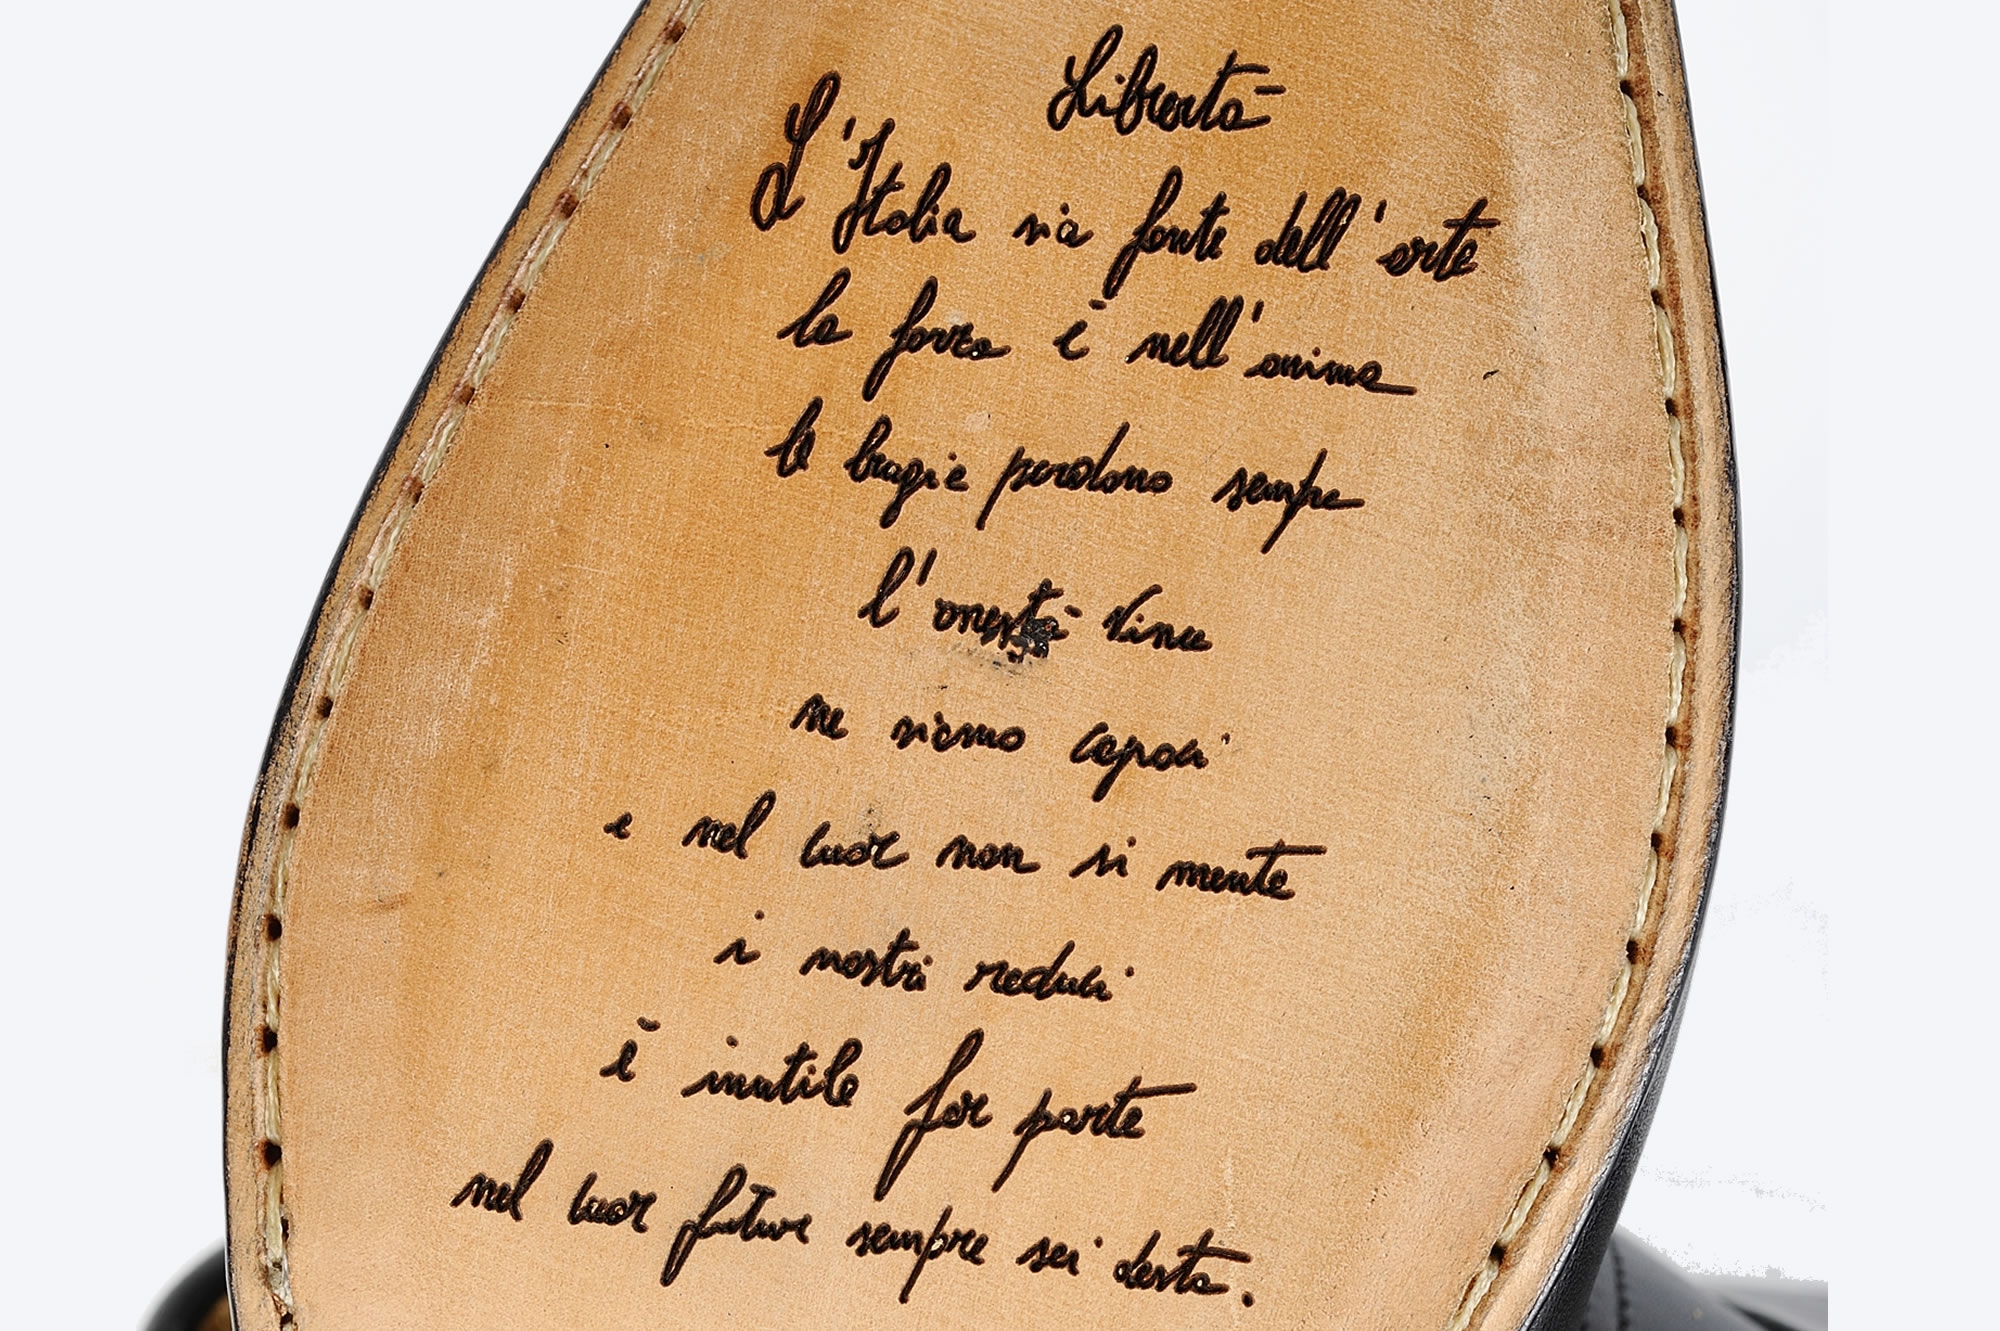 Libertà
L'Italia sia fonte dell'arte
la forza è nell'anima
le bragie perdono sempre
l'onestà vince
ne siamo capaci
e nel cuor non si mente
i nostri reduci
è inutile far parte
nel cuor futur sempre sei desta.